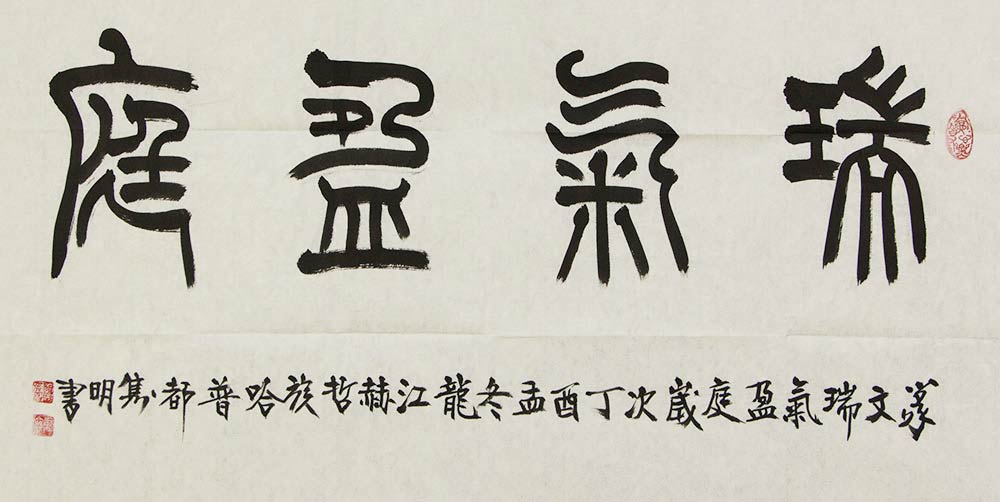 瑞氣盈庭
篆文瑞氣盈庭歲次丁酉孟冬龍江赫哲族哈普都雋明書